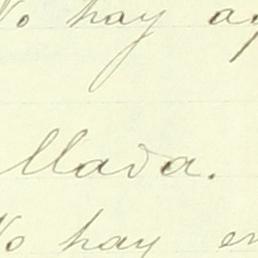 No hay
llada.
No hay en